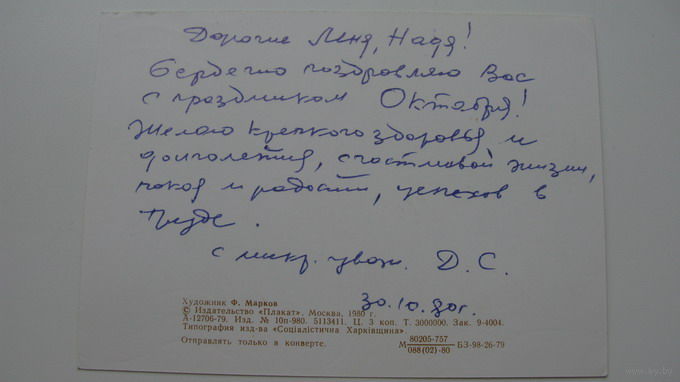 Дорогие Леня, Надя!
Сердечно поздровляю Вас
с праздником Октября!
Желаю крепкого здоровья и
долголетия, счастливой жизни,
покоя и радости, успехов в
труде.
с искр. уваж. Д.С.
30.10.80г.
Художник Ф. Марков
© Издательство «Плакат». Москва, 1980 г.
А-12706-79. Изд. № 10п-980. 5113411. Ц. 3 коп. Т. 3000000. Зак. 9-4004.
Типография изд-ва «Соціалістична Харківщина».
Отправлять только в конверте.
М 80205-757 БЗ-98-26-79
088(02)-80
www.ay.by